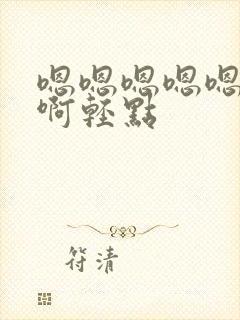 嗯嗯嗯嗯嗯
啊輕點
符清